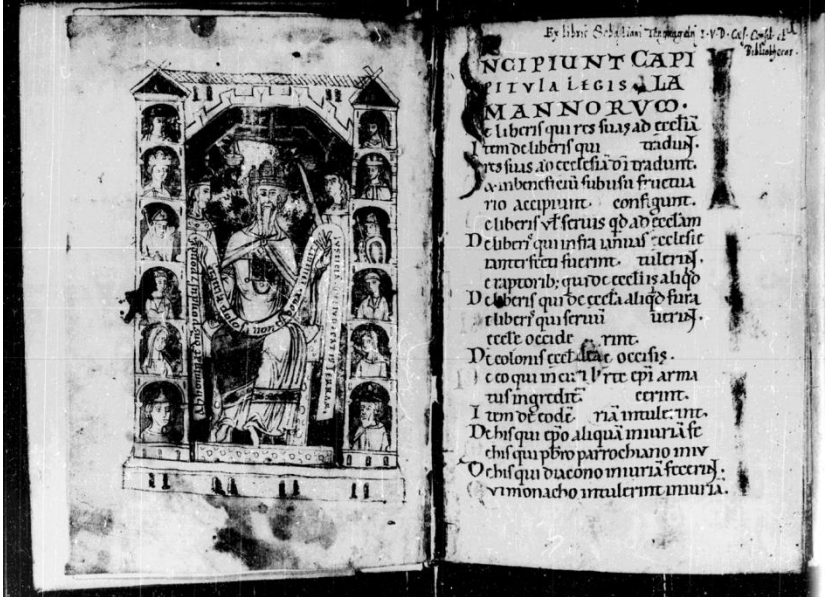 TERRAM.
Ex libris Sebastiani Tengnagelij I·V·D· Cæs· Consil· et
Bibliothecar.
INCIPIUNT CAPI
PITVLA LEGIS ALA
MANNORVM·
e liberis qui res suas ad eccliā
Item de liberis qui tradunt.
res suas ad ecclesiā dī tradunt.
rio accipiunt configunt.
e liberis vl seruis qd ad ecclam
De liberis qui infra ianuas ecclesie
interfecti fuerint. tulerint.
e raptorib; qui de eccliis aliqd
De liberis qui de eccla aliqd fura
e liberis qui seruū uerint.
eccle occide rint.
De colonis eccl occisis.
e eo qui in curte epi arma
tus ingredit̄ cerint.
Item de eodē riā intulerint.
De his qui epo aliquā iniuriā fe
e his qui pbro parrochiano iniu
De his qui diacono iniuriā fecerint.
ui monacho intulerint iniuriā.